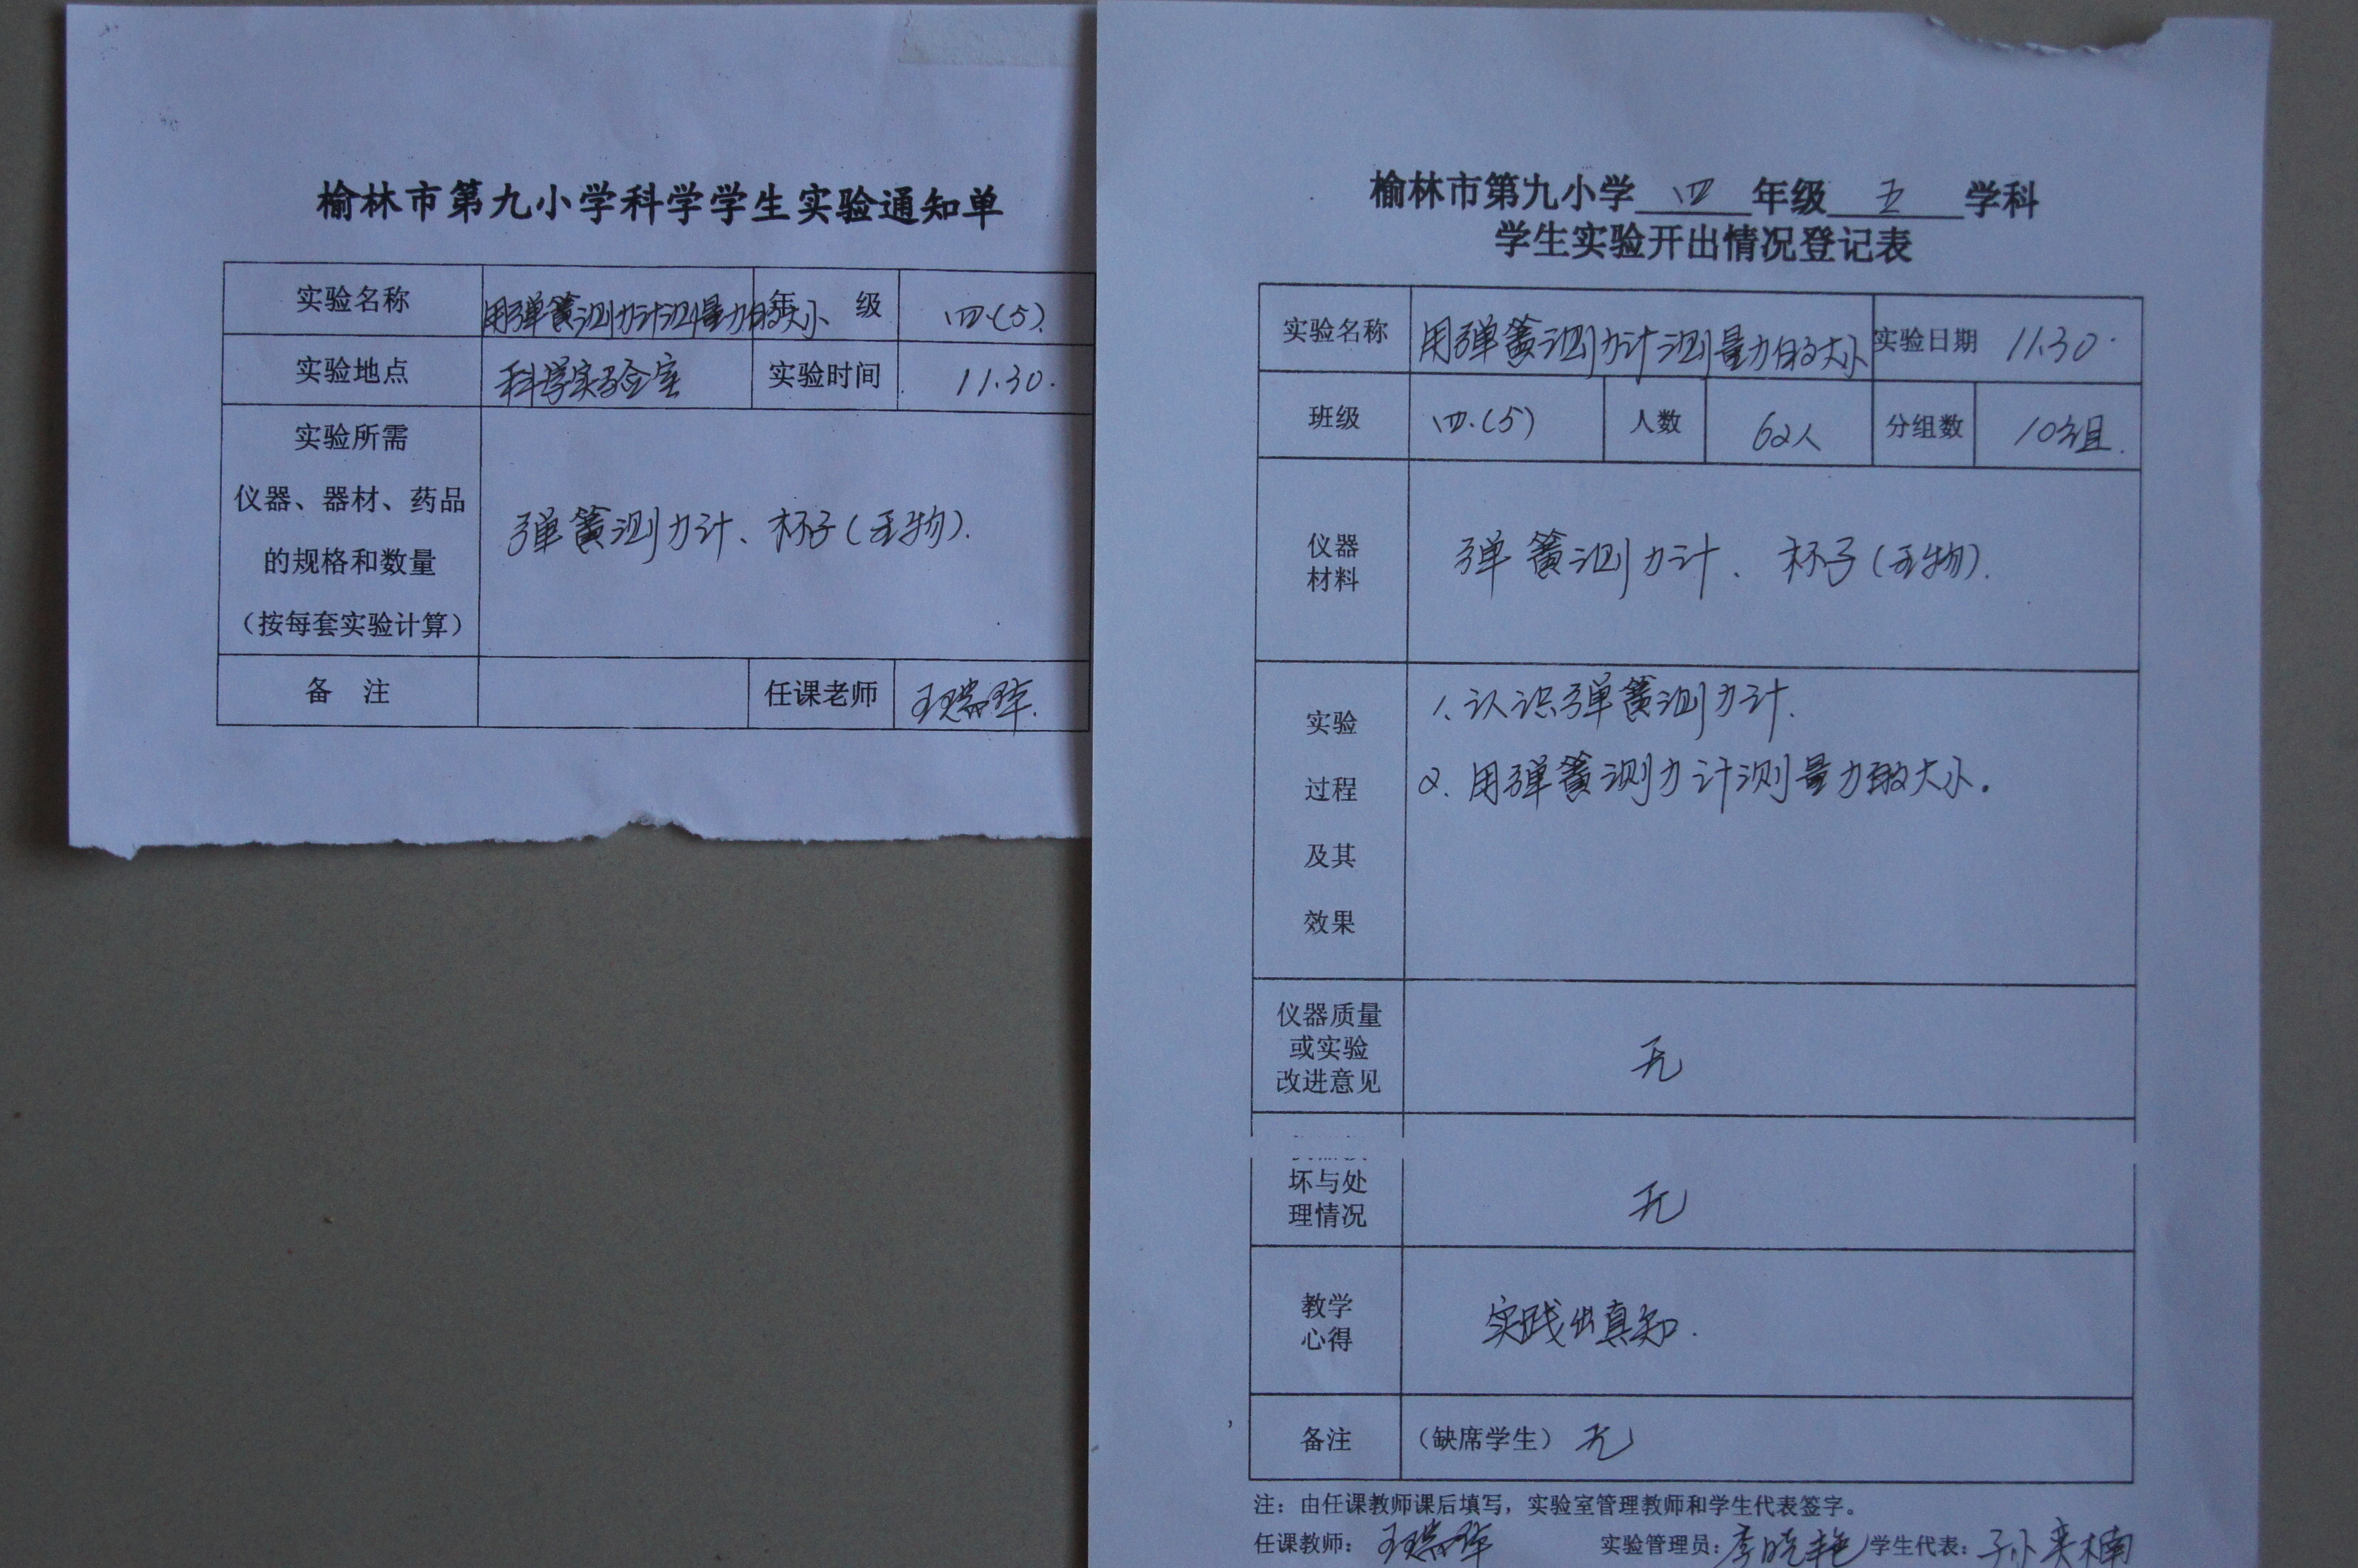 榆林市第九小学科学学生实验通知单
实验名称 用弹簧测力计测量力的大小 年 级 四.(5).
实验地点 科学实验室 实验时间 11.30.
实验所需
仪器、器材、药品
的规格和数量
(按每套实验计算)
弹簧测力计、杯子(重物).
备 注 任课老师
榆林市第九小学 四 年级 五 学科
学生实验开出情况登记表
实验名称 用弹簧测力计测量力的大小 实验日期 11.30.
班级 四.(5) 人数 62人 分组数 10组.
仪器
材料
弹簧测力计、杯子(重物).
实验
过程
及其
效果
1.认识弹簧测力计.
2.用弹簧测力计测量力的大小.
仪器质量
或实验
改进意见
无
坏与处
理情况
无
教学
心得
实践出真知.
备注 (缺席学生) 无
注:由任课教师课后填写,实验室管理教师和学生代表签字。
任课教师: 实验管理员:李晓艳 学生代表: